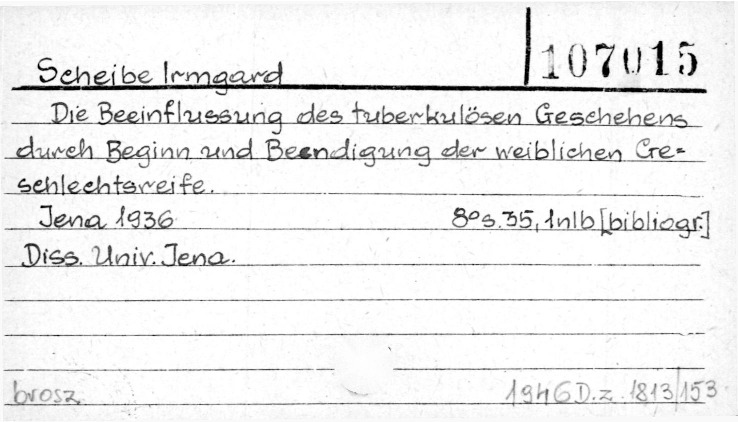 107015
Scheibe Irmgard
Die Beeinflussung des tuberkulösen Geschehens
durch Beginn und Beendigung der weiblichen Ge=
schlechtsreife.
Jena 1936 8º s. 35, 1nlb [bibliogr.]
Diss. Univ. Jena.
brosz. 1946 D. z. 1813/153